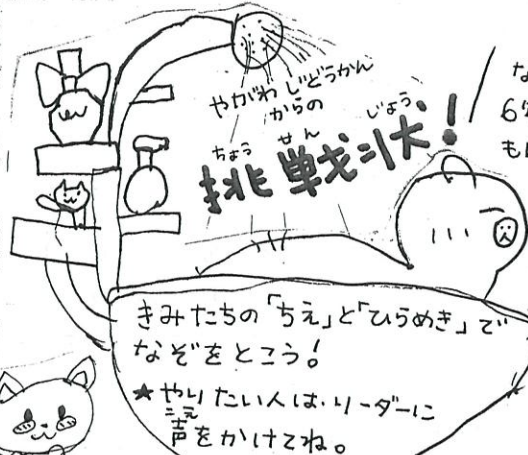 やがわじどうかん
からの
ちょう せん じょう
挑戦状！
な
6
も
きみたちの「ちえ」と「ひらめき」で
なぞをとこう！
★やりたい人は、リーダーに
こえ
声をかけてね。